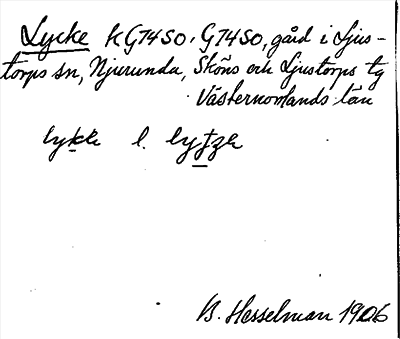 Lycke kG74SO, G74SO, gård i Ljus-
torps sn, Njurunda, Sköns och Ljustorps tg
Västernorrlands län
lykke l. 
B. Hesselman 1906